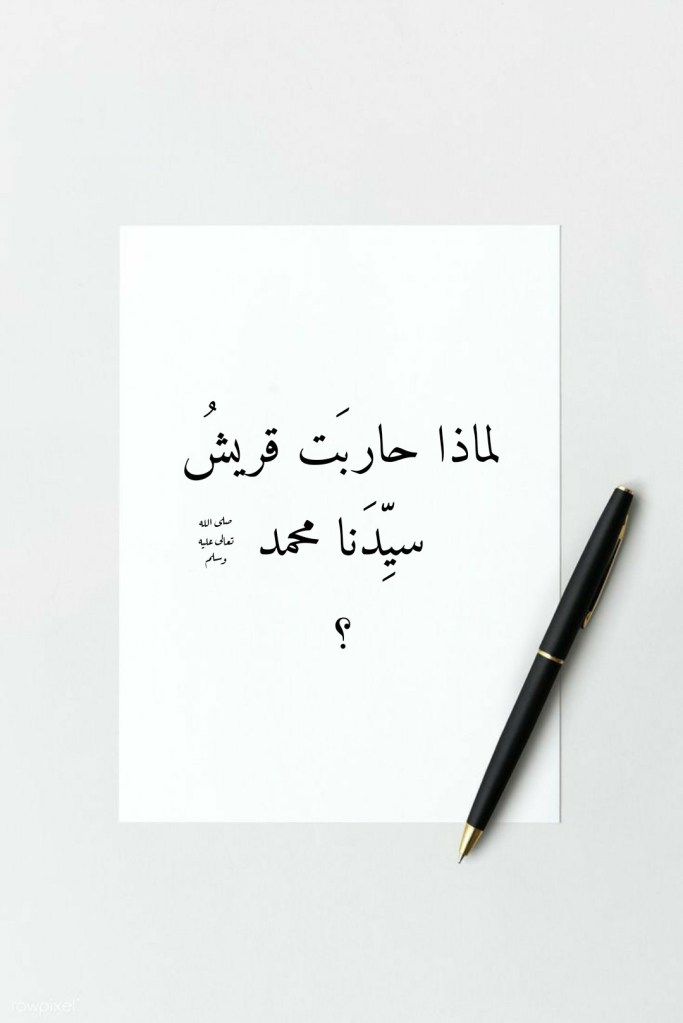 لماذا حاربَت قريشُ
سيِّدَنا محمد صلى الله تعالى عليه وسلم
؟
rawpixel